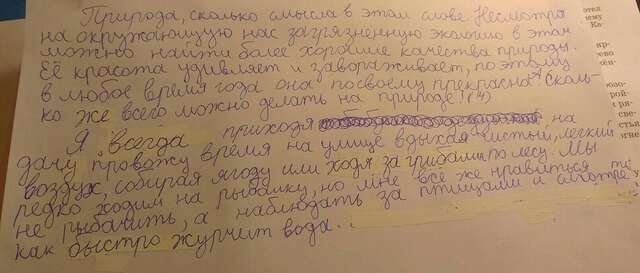 Природа, сколько смысла в этом слове. Несмотря
на окружающую нас загрязнённую экологию в этом
можно найти более хорошие качества природы.
Её красота удивляет и завораживает, поэтому
в любое время года она посвоему прекрасна. А сколь-
ко же всего можно делать на природе! (4)
Я всегда приходя на
дачу провожу время на улице вдыхая чистый, легкий
воздух, собирая ягоду или ходя за грибами по лесу. Мы
редко ходим на рыбалку, но мне всё же нравиться
не рыбачить, а наблюдать за птицами и смотре
как быстро журчит вода...